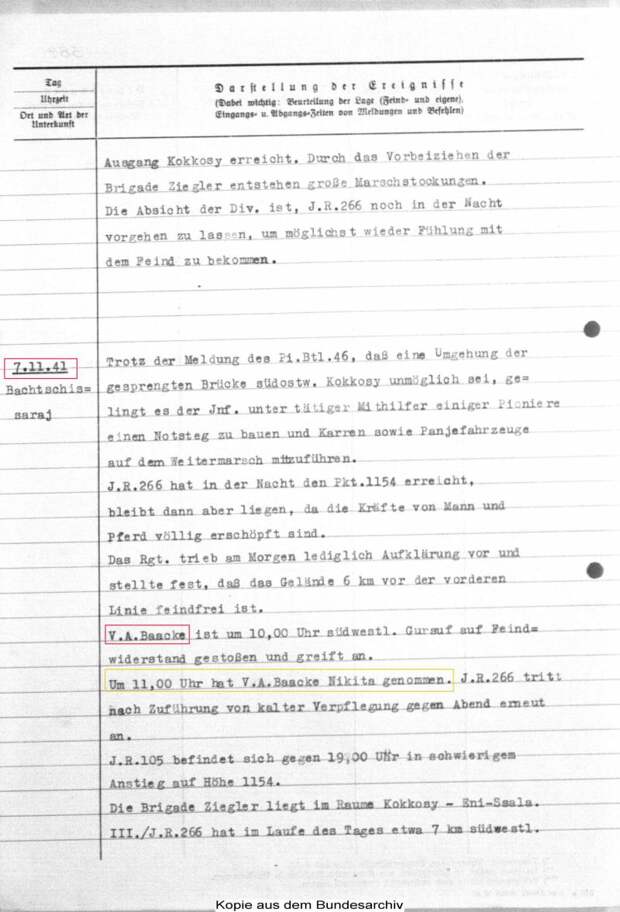 Tag
Uhrzeit
Ort und Art der
Unterkunft
Darstellung der Ereignisse
(Dabei wichtig: Beurteilung der Lage (Feind- und eigene),
Eingangs- u. Abgangs-Zeiten von Meldungen und Befehlen)
Ausgang Kokkosy erreicht. Durch das Vorbeiziehen der
Brigade Ziegler entstehen große Marschstockungen.
Die Absicht der Div. ist, J.R.266 noch in der Nacht
vorgehen zu lassen, um möglichst wieder Fühlung mit
dem Feind zu bekommen.
7.11.41
Bachtschis=
saraj
Trotz der Meldung des Pi.Btl.46, daß eine Umgehung der
gesprengten Brücke südostw. Kokkosy unmöglich sei, ge=
lingt es der Jnf. unter tätiger Mithilfer einiger Pioniere
einen Notsteg zu bauen und Karren sowie Panjefahrzeuge
auf dem Weitermarsch mitzuführen.
J.R.266 hat in der Nacht den Pkt.1154 erreicht,
bleibt dann aber liegen, da die Kräfte von Mann und
Pferd völlig erschöpft sind.
Das Rgt. trieb am Morgen lediglich Aufklärung vor und
stellte fest, daß das Gelände 6 km vor der vorderen
Linie feindfrei ist.
V.A.Baacke ist um 10,00 Uhr südwestl. Gurauf auf Feind=
widerstand gestoßen und greift an.
Um 11,00 Uhr hat V.A.Baacke Nikita genommen. J.R.266 tritt
nach Zuführung von kalter Verpflegung gegen Abend erneut
an.
J.R.105 befindet sich gegen 19,00 Uhr in schwierigem
Anstieg auf Höhe 1154.
Die Brigade Ziegler liegt im Raume Kokkosy - Eni-Ssala.
III./J.R.266 hat im Laufe des Tages etwa 7 km südwestl.
Kopie aus dem Bundesarchiv